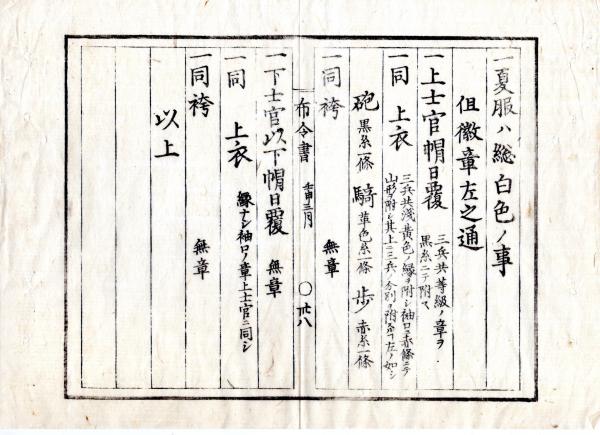 一夏服ハ総白色ノ事
但徽章左之通
一上士官帽日覆 三兵共等級ノ章ヲ
黒糸ニテ附ス
一同 上衣 三兵共浅黄色ノ縁ヲ附シ袖口ニ赤條ニテ
山形ヲ附シ其上ニ三兵ノ分別ヲ附ス左ノ如シ
砲 黒糸一條 騎 萃色糸一條 歩 赤糸一條
一同 袴 無章
布令書 壬申三月 〇 卅八
一下士官以下帽日覆 無章
一同 上衣 縁ナシ袖口ノ章上士官ニ同シ
一同 袴 無章
以上